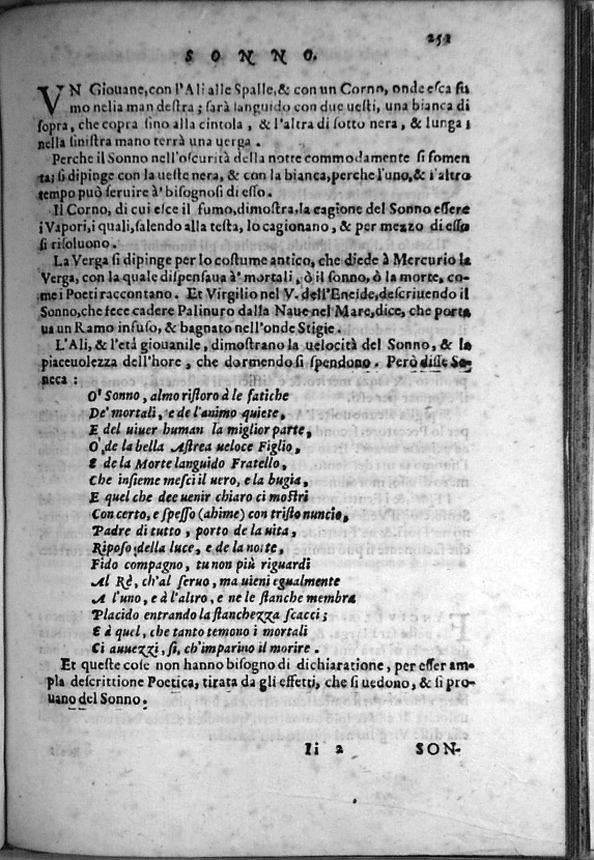 251
SONNO.
VN Giouane, con l'Ali alle Spalle, & con un Corno, onde esca fu
mo nella man destra; sarà languido con due uesti, una bianca di
sopra, che copra sino alla cintola, & l'altra di sotto nera, & lunga;
nella sinistra mano terrà una uerga.
Perche il Sonno nell'oscurità della notte commodamente si fomen
ta; si dipinge con la ueste nera, & con la bianca, perche l'uno, & l'altro
tempo può seruire à' bisognosi di esso.
Il Corno, di cui esce il fumo, dimostra, la cagione del Sonno essere
i Vapori, i quali, salendo alla testa, lo cagionano, & per mezzo di esso
si risoluono.
La Verga si dipinge per lo costume antico, che diede à Mercurio la
Verga, con la quale dispensaua à' mortali, ò il sonno, ò la morte, co-
me i Poeti raccontano. Et Virgilio nel V. dell'Eneide, descriuendo il
Sonno, che fece cadere Palinuro dalla Naue nel Mare, dice, che porta
ua un Ramo infuso, & bagnato nell'onde Stigie.
L'Ali, & l'età giouanile, dimostrano la uelocità del Sonno, & la
piaceuolezza dell'hore, che dormendo si spendono. Però disse Se-
neca:
O' Sonno, almo ristoro à le fatiche
De' mortali, e de l'animo quiete,
E del uiuer human la miglior parte,
O' de la bella Astrea ueloce Figlio,
E de la Morte languido Fratello,
Che insieme mesci il uero, e la bugia,
E quel che dee uenir chiaro ci mostri
Con certo, e spesso (ahime) con tristo nuncio,
Padre di tutto, porto de la uita,
Riposo della luce, e de la notte,
Fido compagno, tu non più riguardi
Al Rè, ch'al seruo, ma uieni egualmente
A l'uno, e à l'altro, e ne le stanche membra
Placido entrando la stanchezza scacci;
E à quel, che tanto temono i mortali
Ci auuezzi, sì, ch'imparino il morire.
Et queste cose non hanno bisogno di dichiaratione, per esser am-
pla descrittione Poetica, tirata da gli effetti, che si uedono, & si pro-
uano del Sonno.
Ii 2 SON-